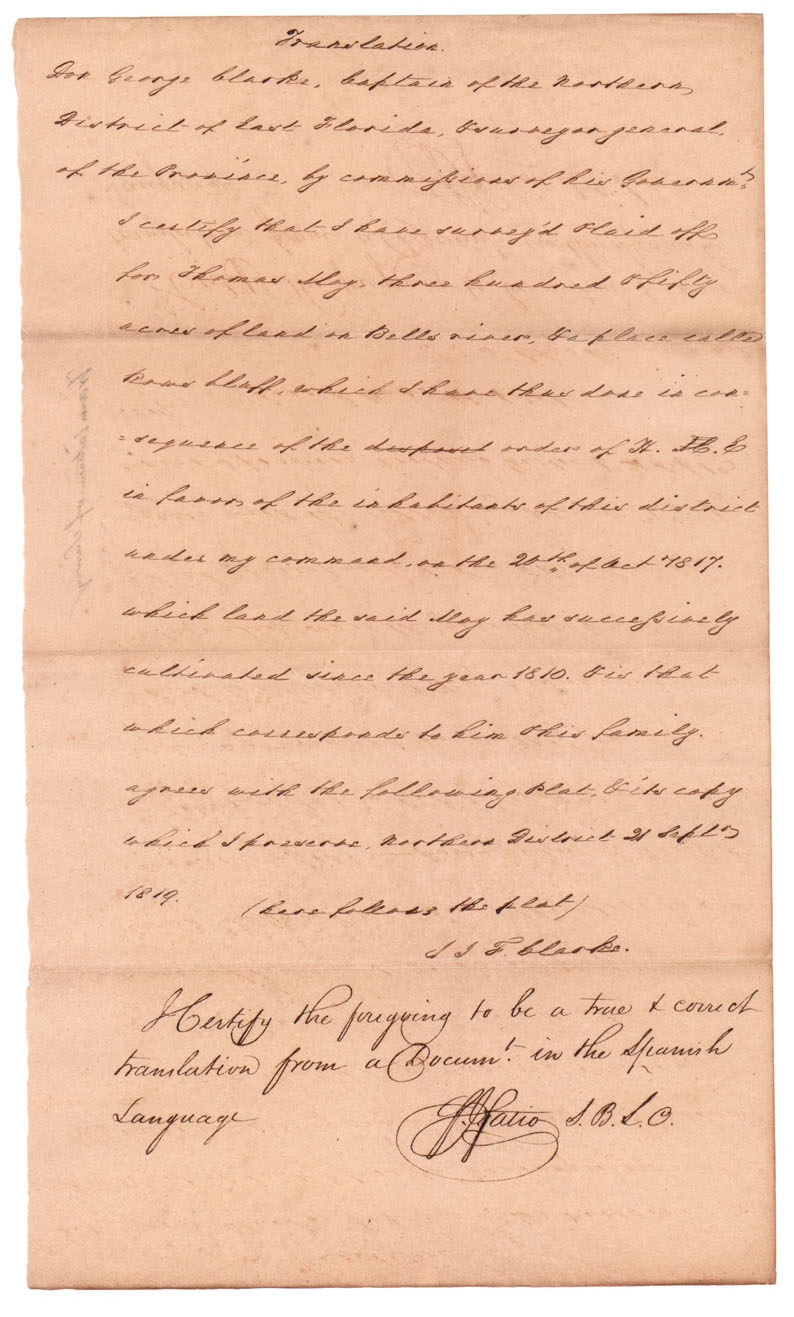 Translation.
Don George Clarke, Captain of the Northern
District of East Florida, & surveyor general
of the Province, by commissions of his Governmt.
I certify that I have survey'd & laid off
for Thomas May, three hundred & fifty
acres of land on Bells river, & a place called
Rows bluff, which I have thus done in con=
=sequence of the orders of H. E
in favor of the inhabitants of this district
under my command, on the 20th of Oct 1817.
which land the said May has successively
cultivated since the year 1810. & is that
which corresponds to him & his family.
agrees with the following Plat, & its copy
which I preserve, Northern District 21 Septr
1819. (here follows the plat)
G I F. Clarke.
I Certify the foregoing to be a true & correct
translation from a Documt. in the Spanish
Language
F. J. Fatio S. B. L. C.